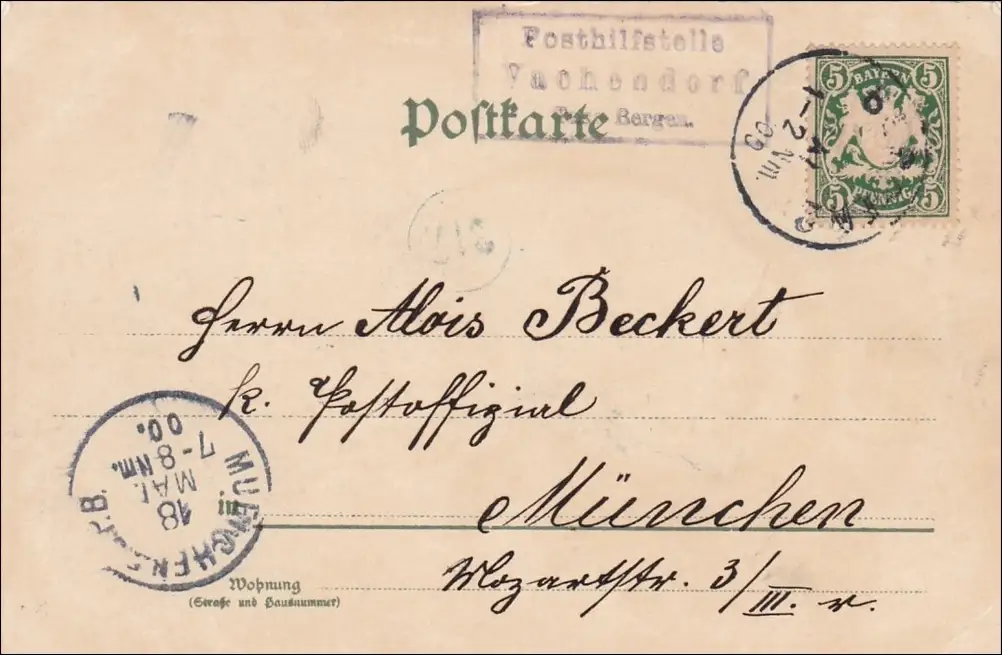 Posthilfstelle
Vachendorf
Bergen.
Postkarte
5 BAYERN 5
5 PFENNIG 5
1-2 Nm.
00
Herrn Alois Beckert
k. Postoffizial
in München
Mozartstr. 3/III. r.
Wohnung
(Straße und Hausnummer)
MUENCHEN
18
MAI
7-8 Nm.
00.